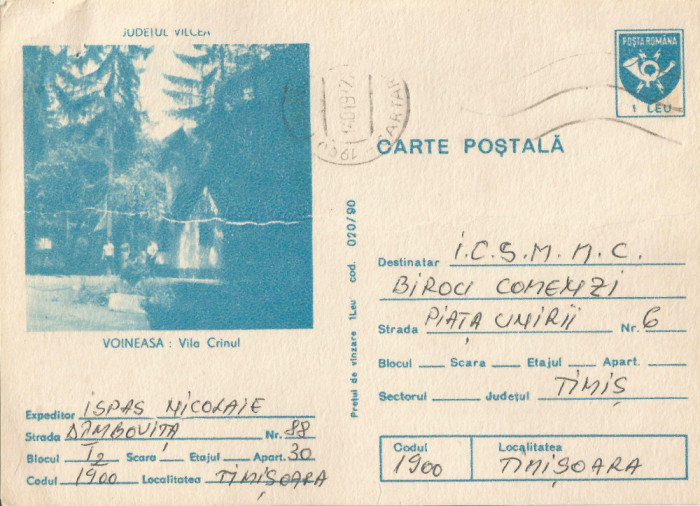 JUDEȚUL VÎLCEA
POȘTA ROMÂNA
1 LEU
CARTE POȘTALĂ
VOINEASA : Vila Crinul
Prețul de vînzare 1Leu cod. 020/90
Destinatar I.C.S.M.M.C.
BIROU COMENZI
Strada PIAȚA UNIRII Nr. 6
Blocul Scara Etajul Apart.
Sectorul Județul TIMIȘ
Codul Localitatea
1900 TIMIȘOARA
Expeditor ISPAS NICOLAIE
Strada DÎMBOVIȚA Nr. 88
Blocul I2 Scara Etajul Apart. 30
Codul 1900 Localitatea TIMIȘOARA